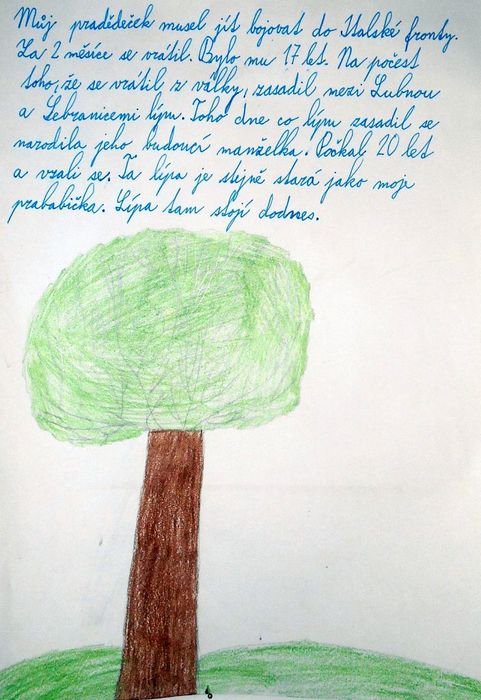 Můj pradědeček musel jít bojovat do Italské fronty.
Za 2 měsíce se vrátil. Bylo mu 17 let. Na počest
toho, že se vrátil z války, zasadil mezi Lubnou
a Sebranicemi lípu. Toho dne co lípu zasadil se
narodila jeho budoucí manželka. Počkal 20 let
a vzali se. Ta lípa je stejně stará jako moje
prababička. Lípa tam stojí dodnes.